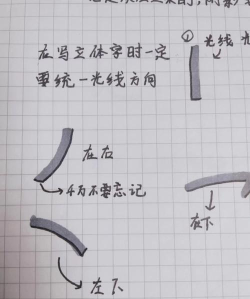 ① 光线
在写立体字时一定
要统一光线方向
在右
千万不要忘记
在下
左下